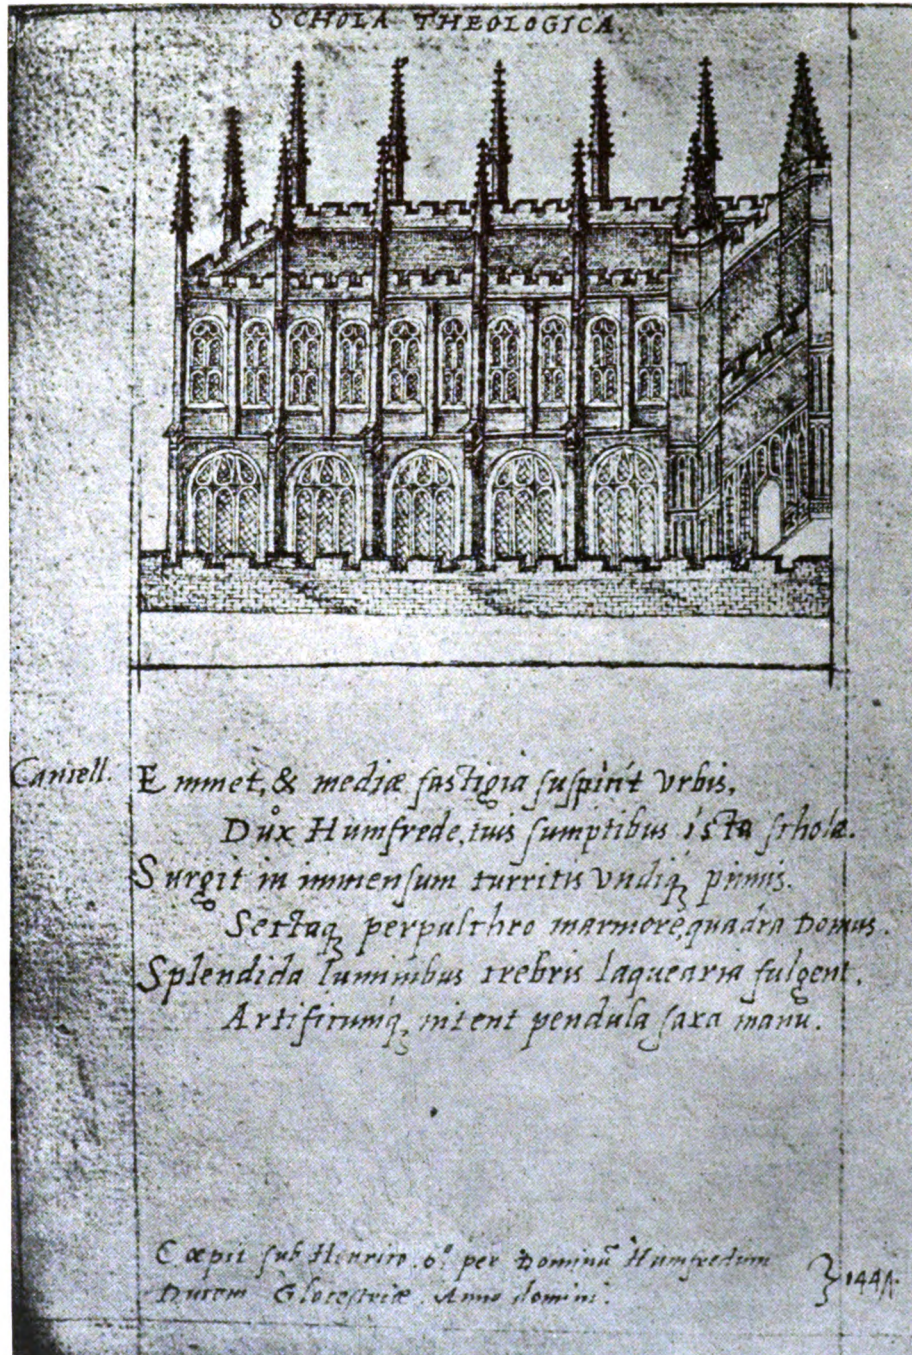 SCHOLA THEOLOGICA.
Cancell. Eminet, & mediæ faſtigia ſuſpicit Vrbis,
Důx Humfrede, tuis ſumptibus iſta ſchola.
Surgit in immenſum turritis Vndiq; pinnis.
Sectaq; perpulchro marmore, quadra Domus.
Splendida luminibus crebris laquearia fulgent.
Artificumq; nitent pendula ſaxa manu.
Cœpit ſub Henrico .6º per Dominū Humfredum
Ducem Gloceſtriæ. Anno domini.